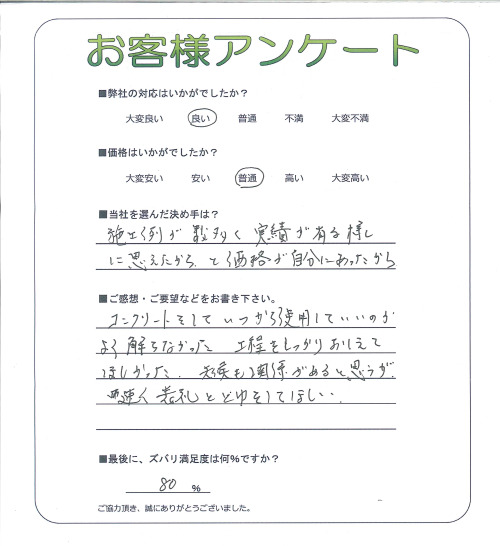 お客様アンケート
■弊社の対応はいかがでしたか？
大変良い 良い 普通 不満 大変不満
■価格はいかがでしたか？
大変安い 安い 普通 高い 大変高い
■当社を選んだ決め手は？
施工例が数多く 実績が有る様し
に思えたから と価格が自分にあったから
■ご感想・ご要望などをお書き下さい。
コンクリートをして いつから使用していいのか
よく解らなかった 工程をしっかりおしえて
ほしかった. 天候も関係があると思うが.
早速く 表札と をしてほしい.
■最後に、ズバリ満足度は何%ですか？
80 %
ご協力頂き、誠にありがとうございました。